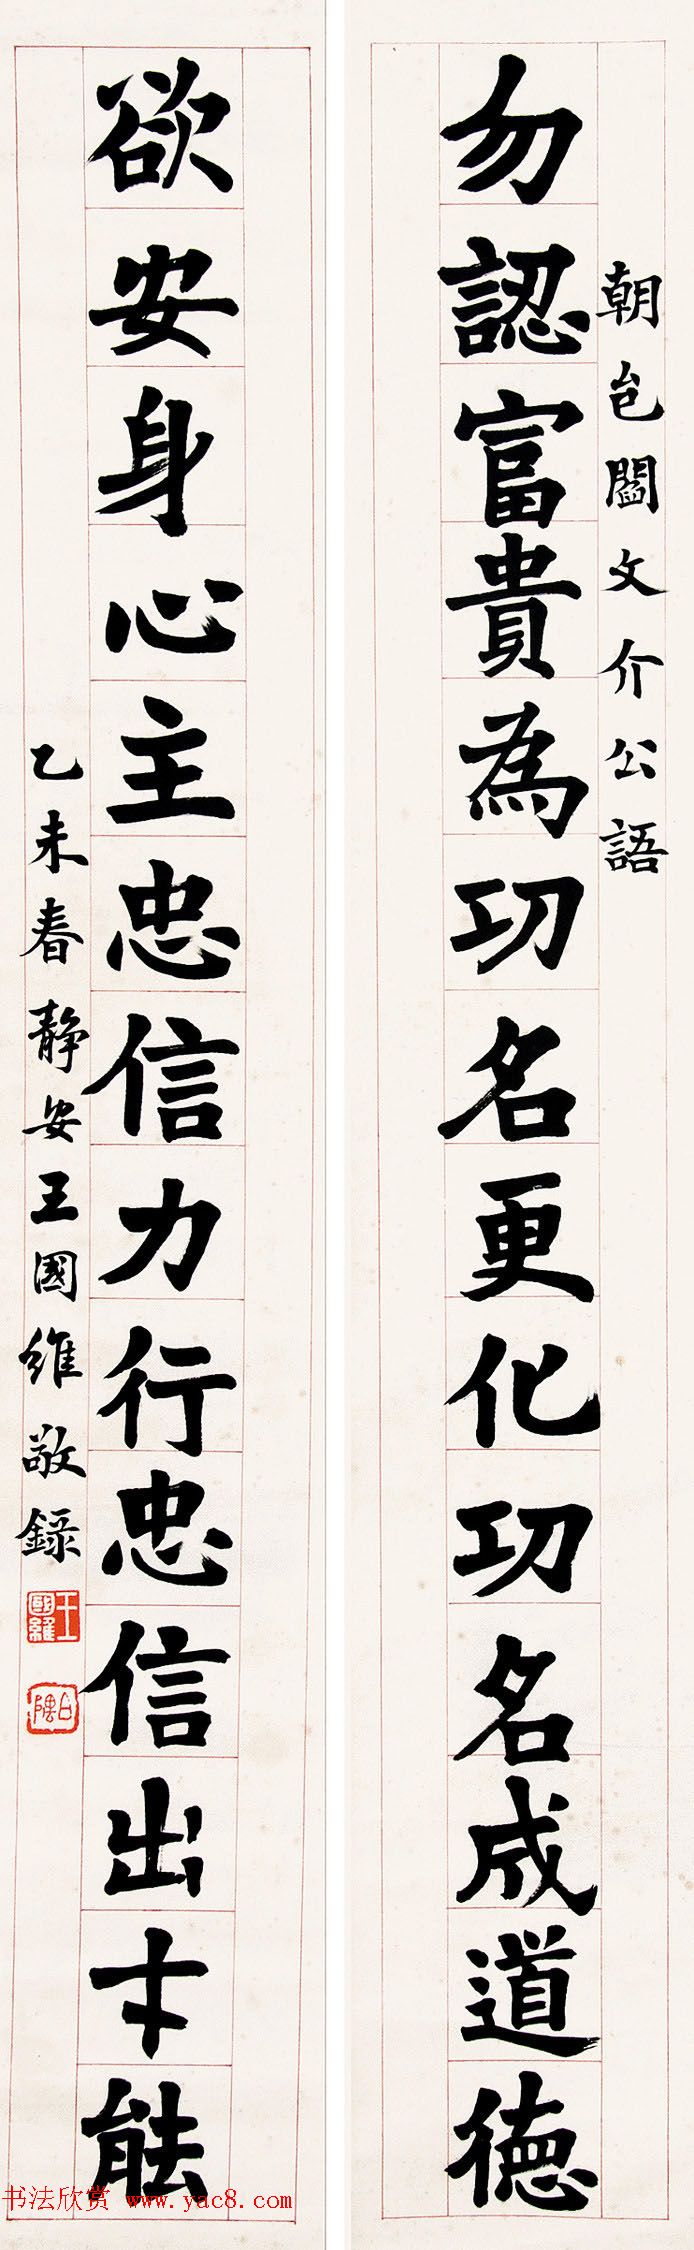 朝邑閻文介公語
勿認富貴為功名更化功名成道德
欲安身心主忠信力行忠信出才能
乙未春静安王國維敬録
王國維
書法欣赏 www.yac8.com